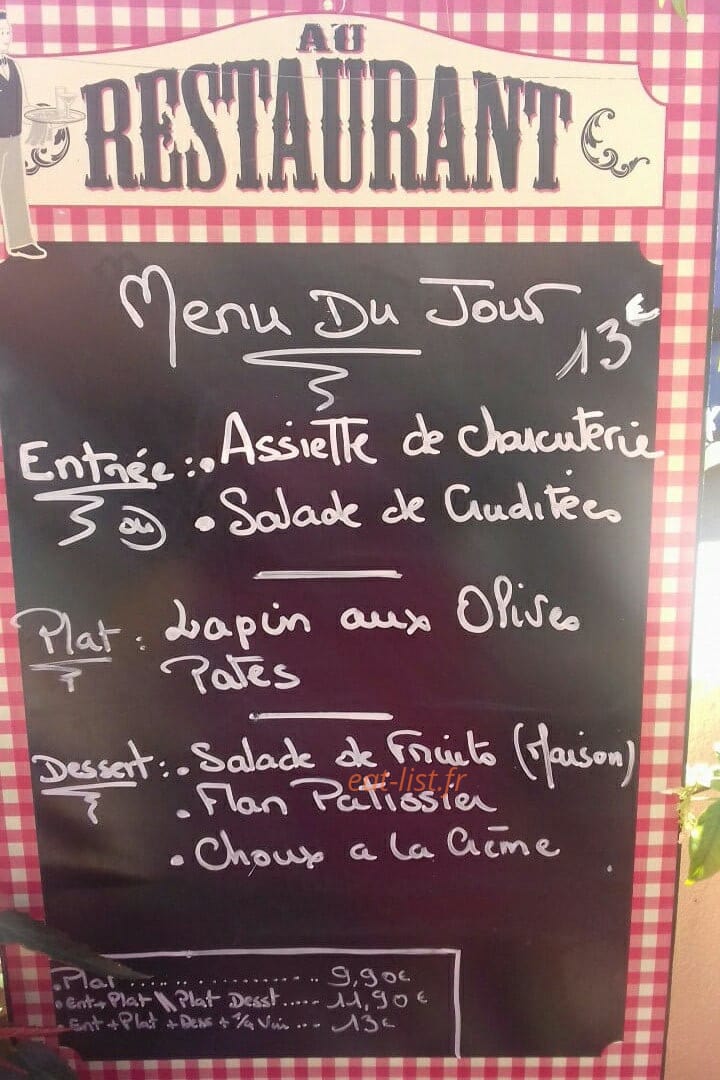 AU
RESTAURANT
Menu Du Jour
13€
Entrée : • Assiette de charcuterie
ou • Salade de Cruditées
Plat : Lapin aux Olives
Pates
Dessert : • Salade de Fruits (Maison)
eat-list.fr
• Flan Patissier
• Choux a la Crème
• Plat .................. 9,90€
• Ent+Plat \\ Plat Desst..... 11,90€
• Ent + Plat + Dess + 1/4 Vin ... 13€